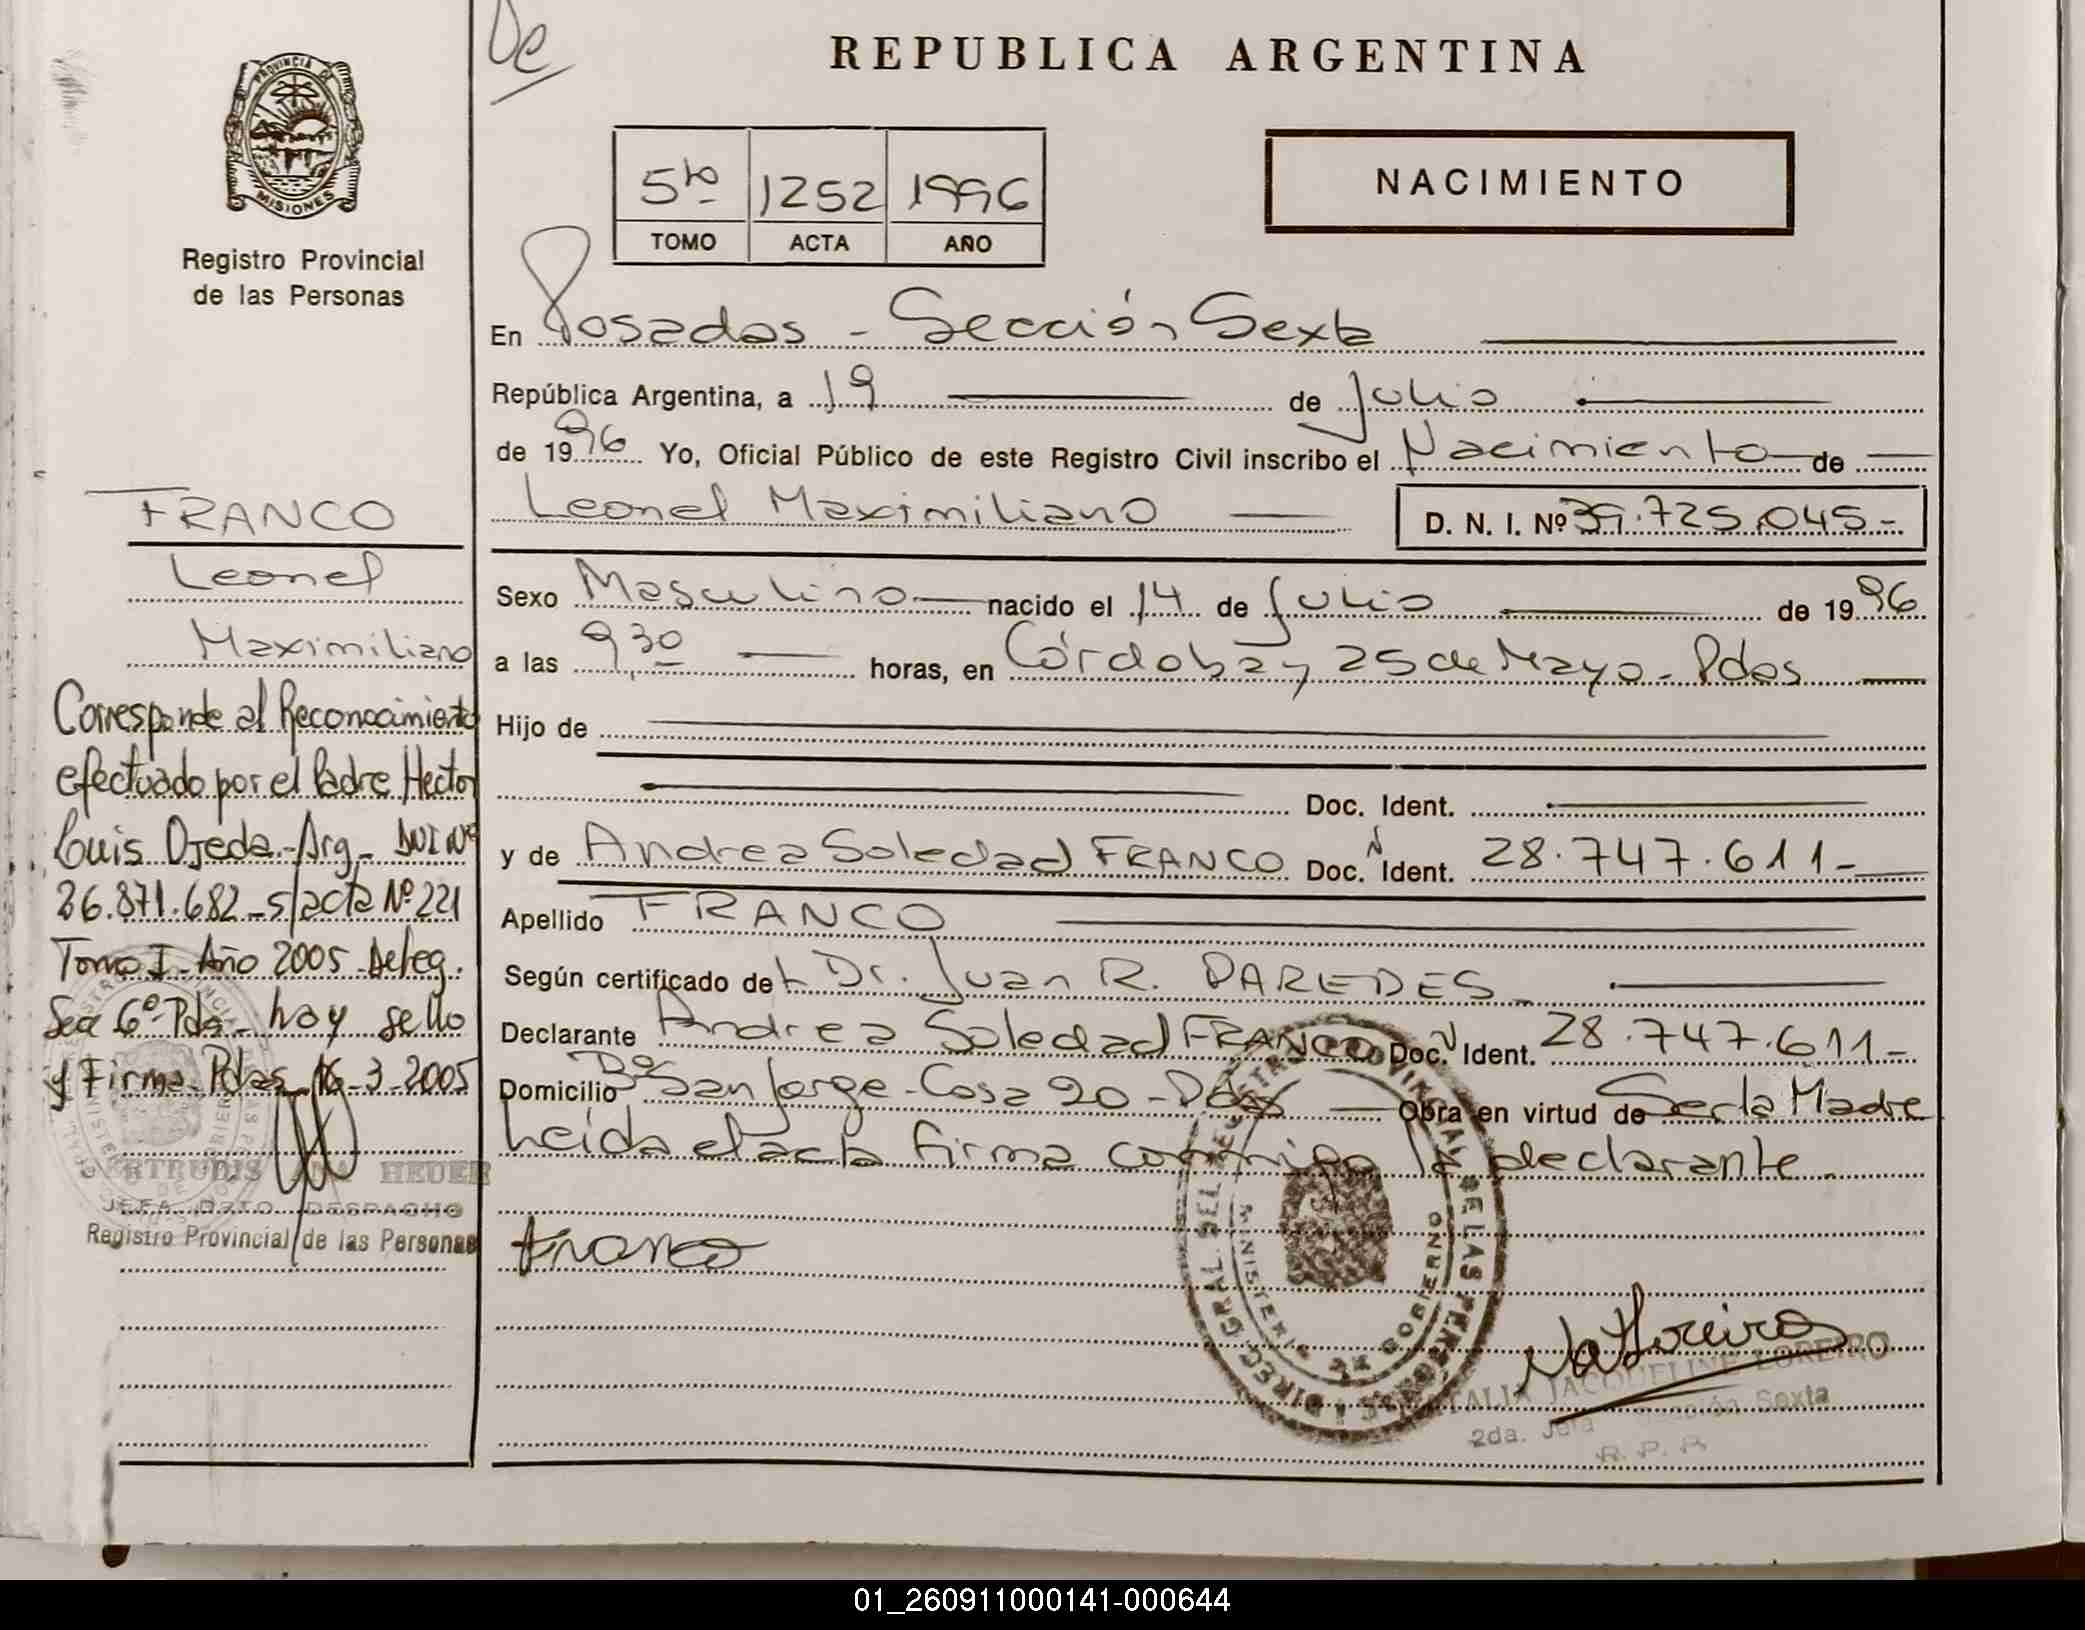 De
REPUBLICA ARGENTINA
PROVINCIA DE
MISIONES
Registro Provincial
de las Personas
5to 1252 1996
TOMO ACTA AÑO
NACIMIENTO
En Posadas - Sección Sexta
República Argentina, a 19 de Julio
de 1996 Yo, Oficial Público de este Registro Civil inscribo el Nacimiento de
Leonel Maximiliano D. N. I. Nº 39.725.045-
Sexo Masculino nacido el 14 de Julio de 1996
a las 9,30 horas, en Córdoba y 25 de Mayo - Pdas
Hijo de
Doc. Ident.
y de Andrea Soledad FRANCO Doc. N Ident. 28.747.611-
Apellido FRANCO
Según certificado del Dr. Juan R. PAREDES
Declarante Andrea Soledad FRANCO Doc. N Ident. 28.747.611-
Domicilio Bº San Jorge - Casa 20 - Pdas Obra en virtud de Ser la Madre
Leída el acta firma conmigo la declarante
Franco
NATALIA JACQUELINE LOREIRO
2da. Jefa Sección Sexta
R. P. P.
FRANCO
Leonel
Maximiliano
Corresponde al Reconocimiento
efectuado por el Padre Hector
Luis Ojeda - Arg - DNI Nº
26.871.682 - s/acta Nº 221
Tomo I - Año 2005 - Deleg.
Sec 6º - Pdas - hay sello
y Firma - Pdas 16-3-2005
GERTRUDIS ANA HEUER
JEFA DPTO DESPACHO
Registro Provincial de las Personas
01_260911000141-000644